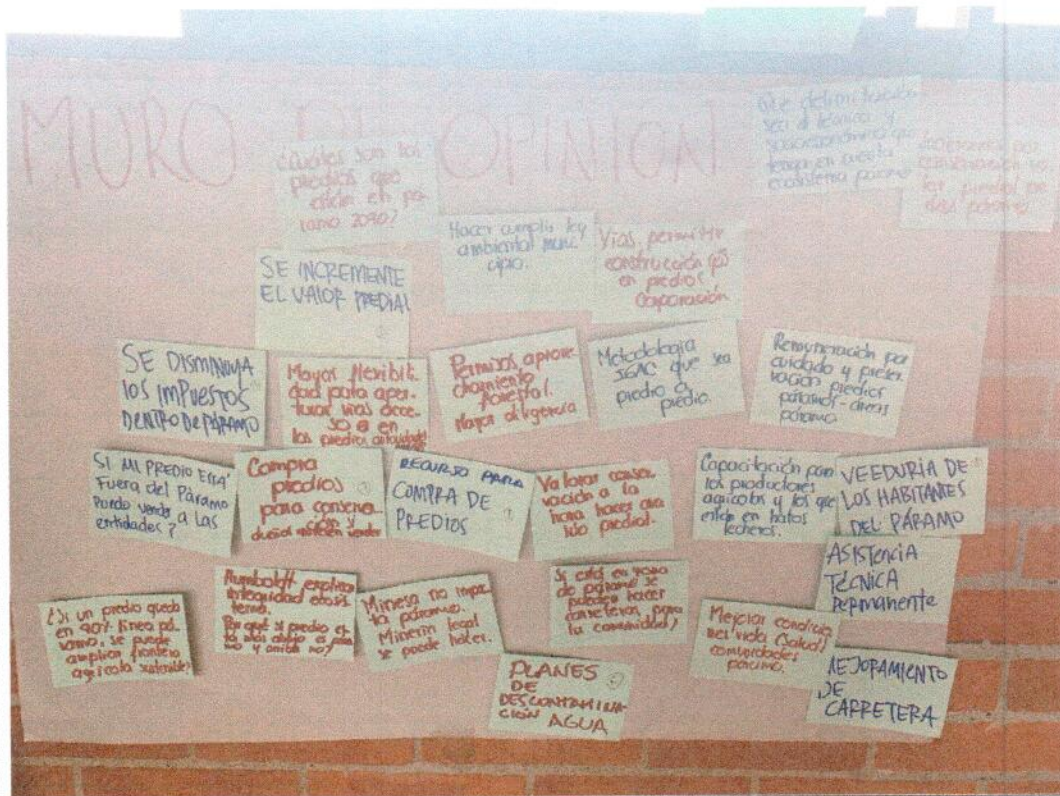 MURO DE OPINION
¿Cuáles son los
predios que
están en pá-
ramo 2090?
Que delimitación
sea técnica y
socioeconómica que
tenga en cuenta
ecosistema páramo
conservación
predial
páramo
Hacer cumplir ley
ambiental muni
cipio.
Vías, permitir
construcción
en predios
Corporación
SE INCREMENTE
EL VALOR PREDIAL
SE DISMINUYA
los IMPUESTOS
DENTRO DE PÁRAMO
Mayor flexibili-
dad para aper-
turar vías acce-
so en
los predios
Permisos aprove-
chamiento
forestal.
Mayor diligencia
Metodología
IGAC que sea
predio a
predio.
Remuneración por
cuidado y preser
vación predios
páramos - áreas
páramo
SI MI PREDIO ESTÁ
Fuera del Páramo
Puedo vender a las
entidades?
Compra
predios
para conserva-
ción y
RECURSO PARA
COMPRA DE
PREDIOS
Valorar conser
vación a la
hora hacer ava
lúo predial.
Capacitación para
los productores
agrícolas y los que
estén en hatos
lecheros.
VEEDURÍA DE
LOS HABITANTES
DEL PÁRAMO
¿Si un predio queda
en 90% línea pá-
ramo, se puede
ampliar frontera
agrícola sostenible?
Humboldt explicar
integridad ecosis
tema.
Por qué si predio es
tá más abajo es pára
mo y arriba no?
Minesa no impac
ta páramo.
Minería legal
se puede hacer.
Si está en zona
de páramo se
pueden hacer
carreteras para
la comunidad?
Mejorar condicio
nes vida (salud)
comunidades
páramo.
ASISTENCIA
TÉCNICA
Permanente
PLANES
DE
DESCONTAMINA
CIÓN AGUA
MEJORAMIENTO
DE
CARRETERA